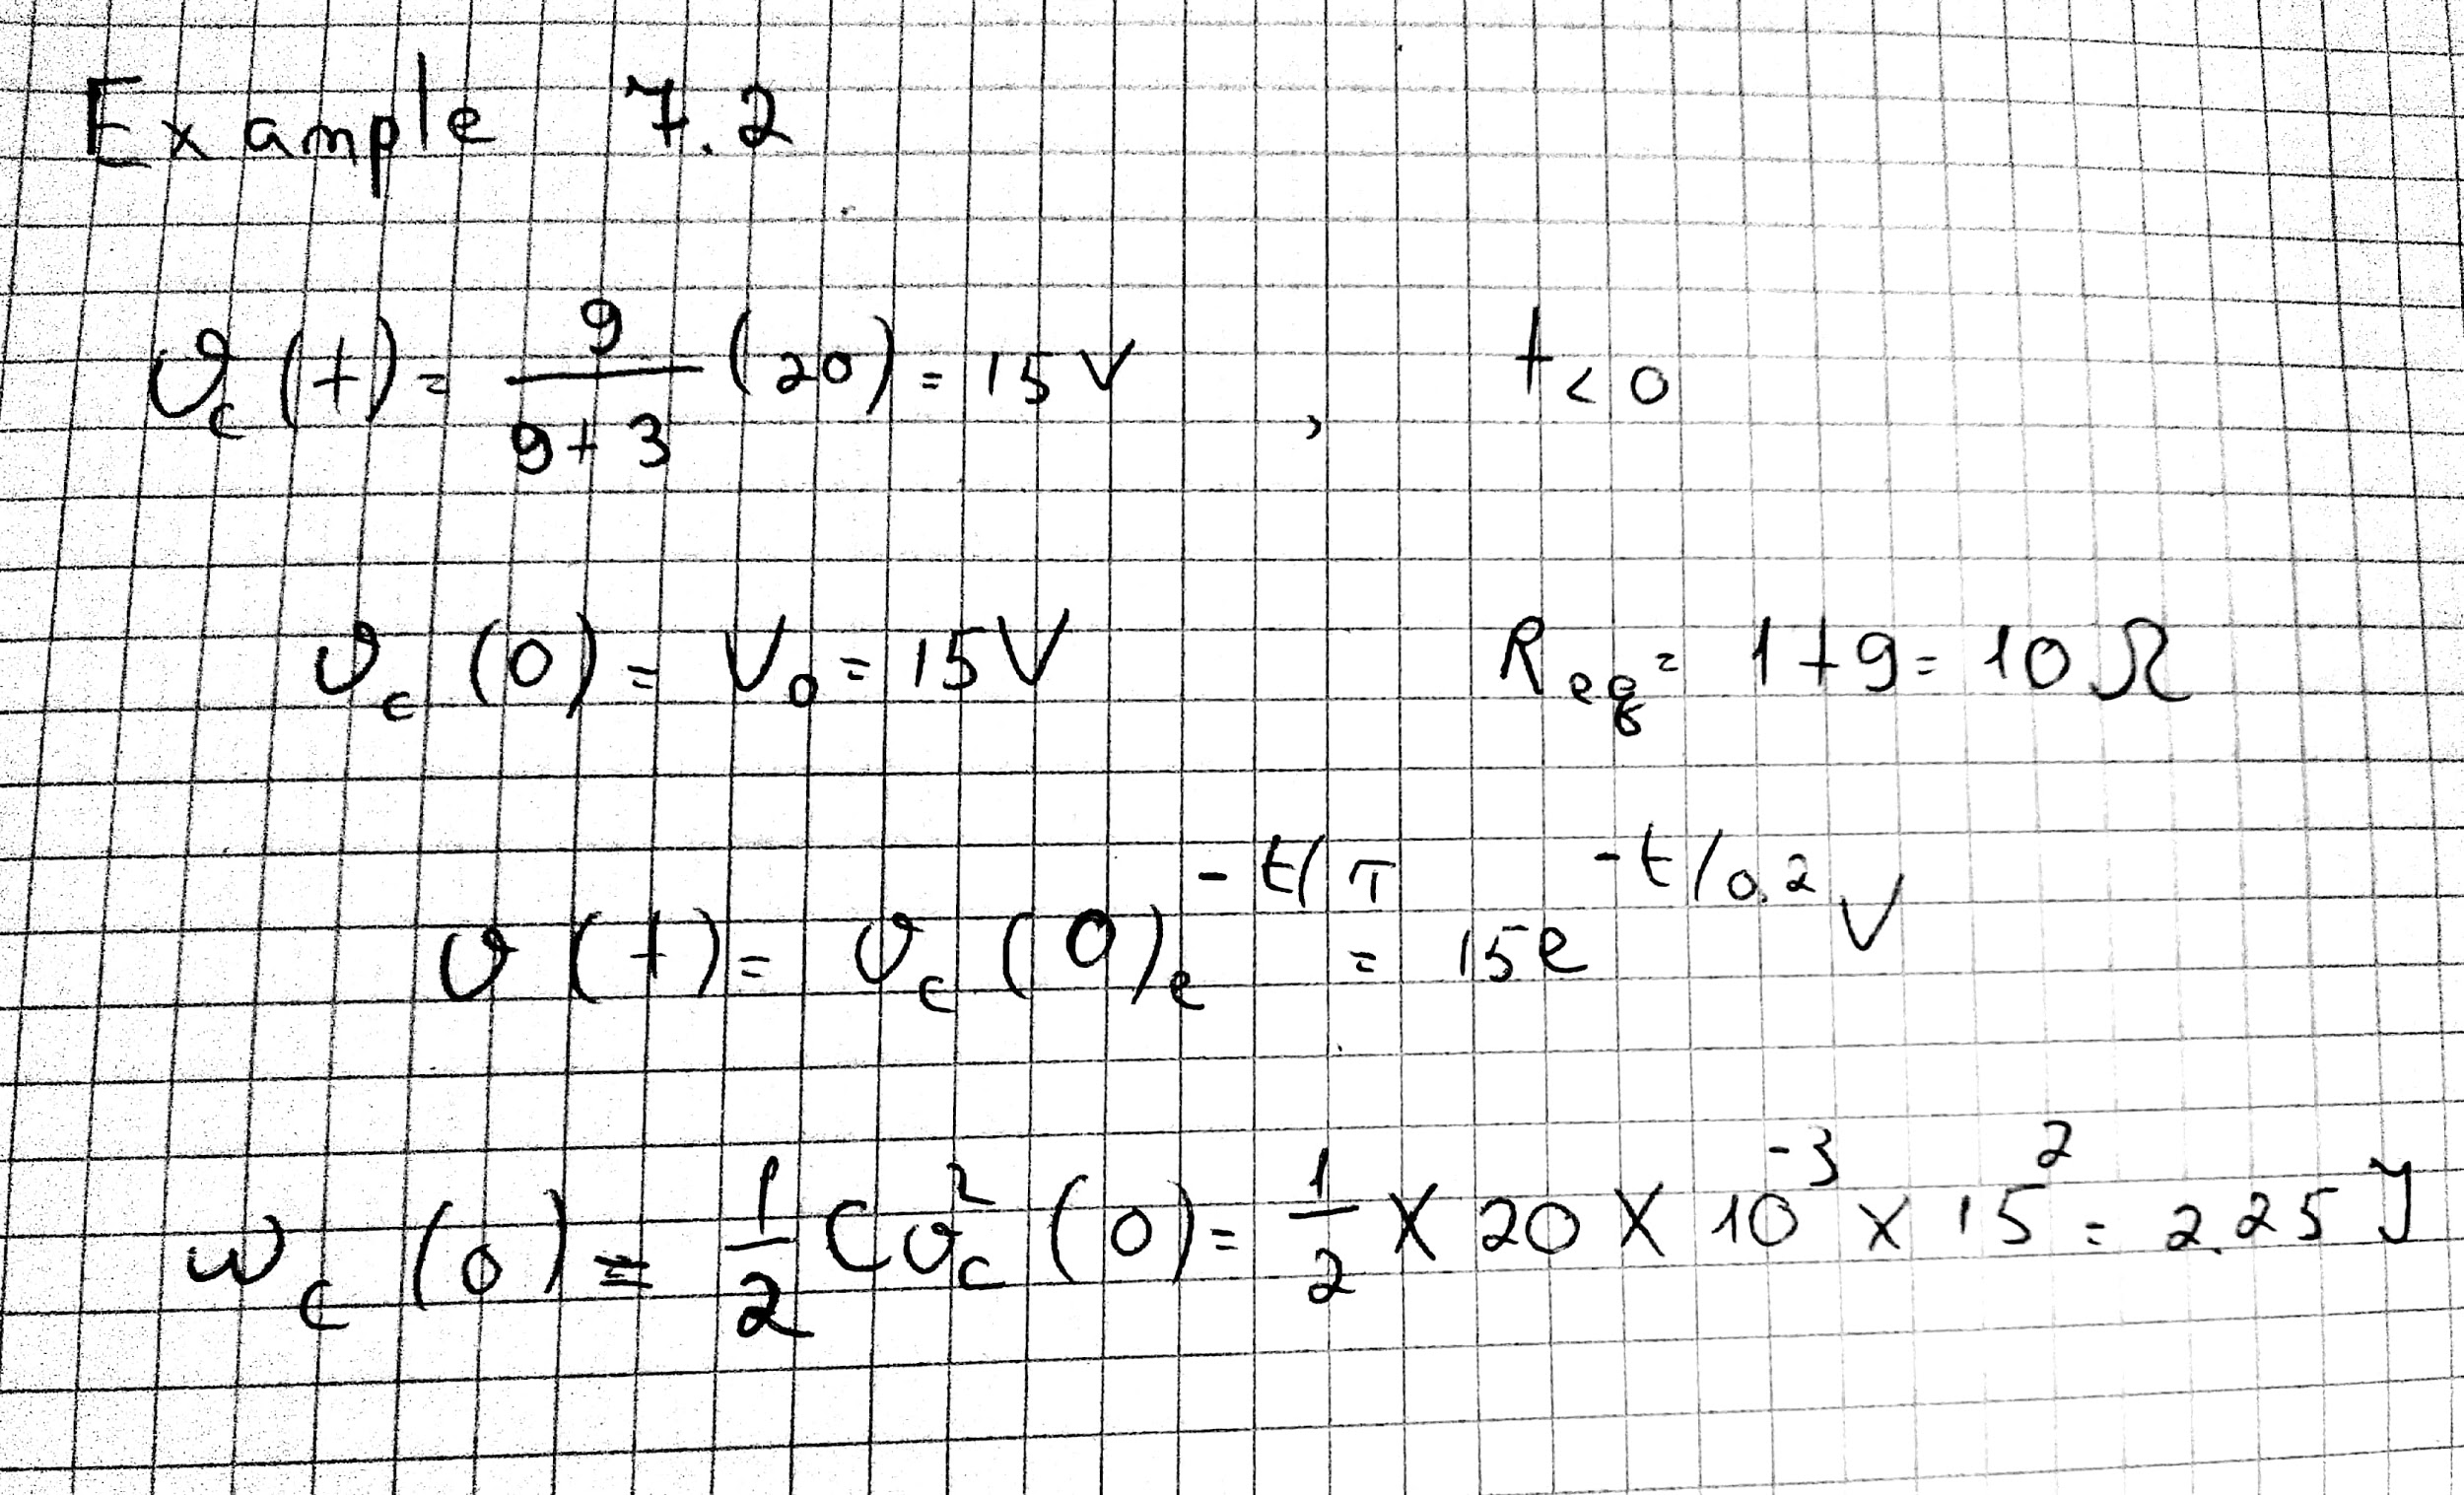 Example 7.2
v_c (t) = 9/(9+3) (20) = 15 V , t < 0
v_c (0) = V_0 = 15 V R_eq = 1 + 9 = 10 Ω
v (t) = v_c (0) e^(-t/τ) = 15 e^(-t/0.2) V
w_c (0) = 1/2 C v_c^2 (0) = 1/2 × 20 × 10^-3 × 15^2 = 2.25 J